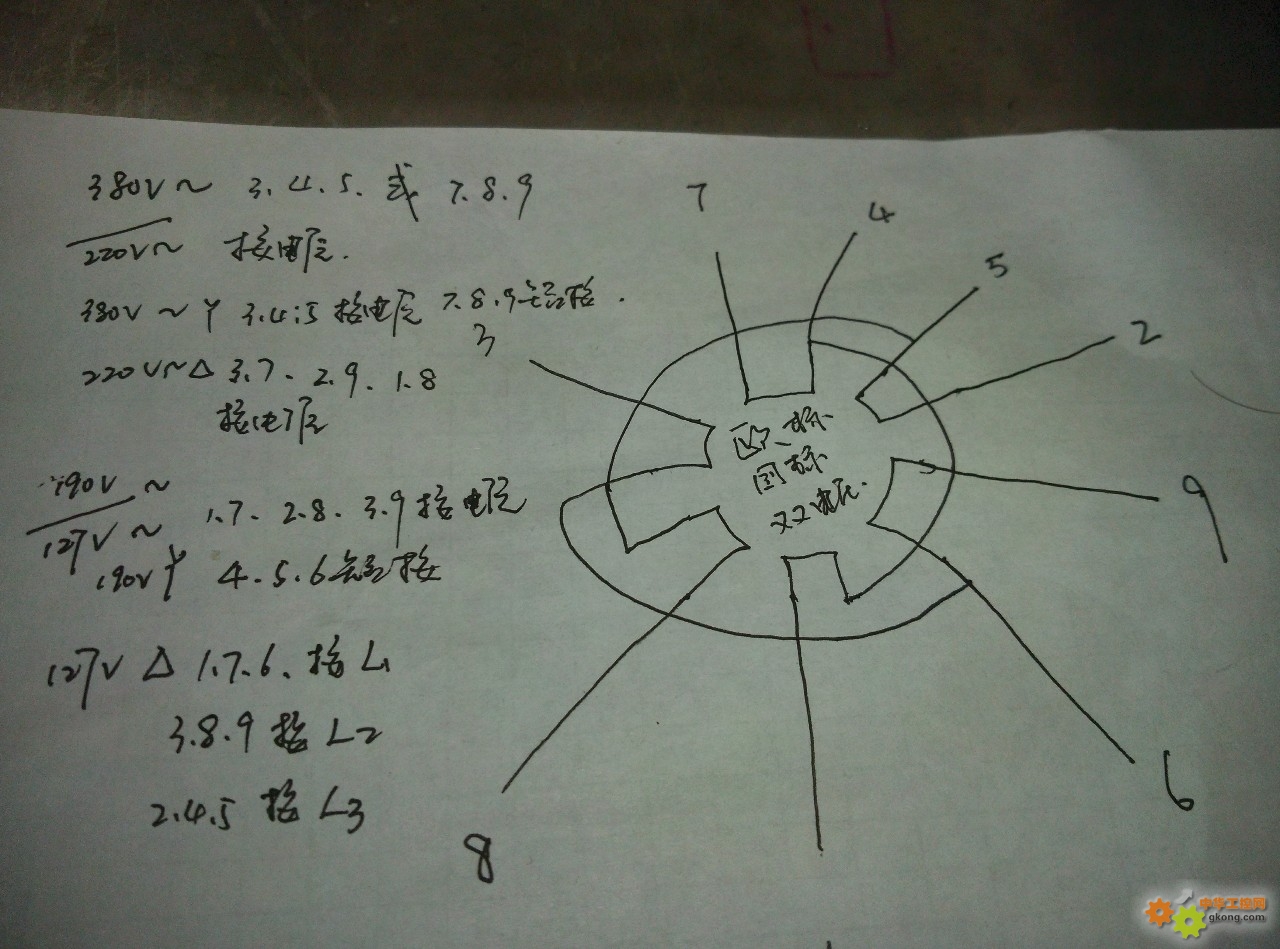 380V~ 3.4.5. 或 7.8.9
220V~ 接电源.
380V~Y 3.4.5接电源 7.8.9短接.
220V~△ 3.7. 2.9. 1.8
接电源
190V~
127V~ 1.7. 2.8. 3.9接电源
190V Y 4.5.6短接
127V △ 1.7.6. 接L1
3.8.9 接L2
2.4.5 接L3
7
4
5
2
3
9
6
8
欧标
国标
双电压.
中华工控网
gkong.com